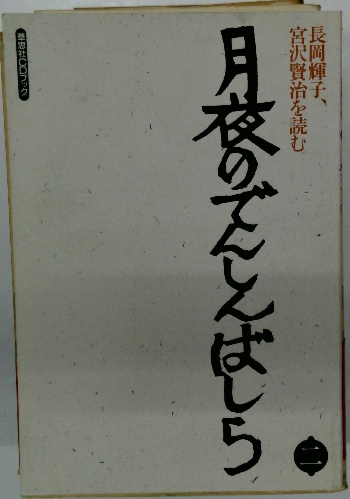 長岡輝子、
宮沢賢治を読む
月夜のでんしんばしら
二
草思社CDブック